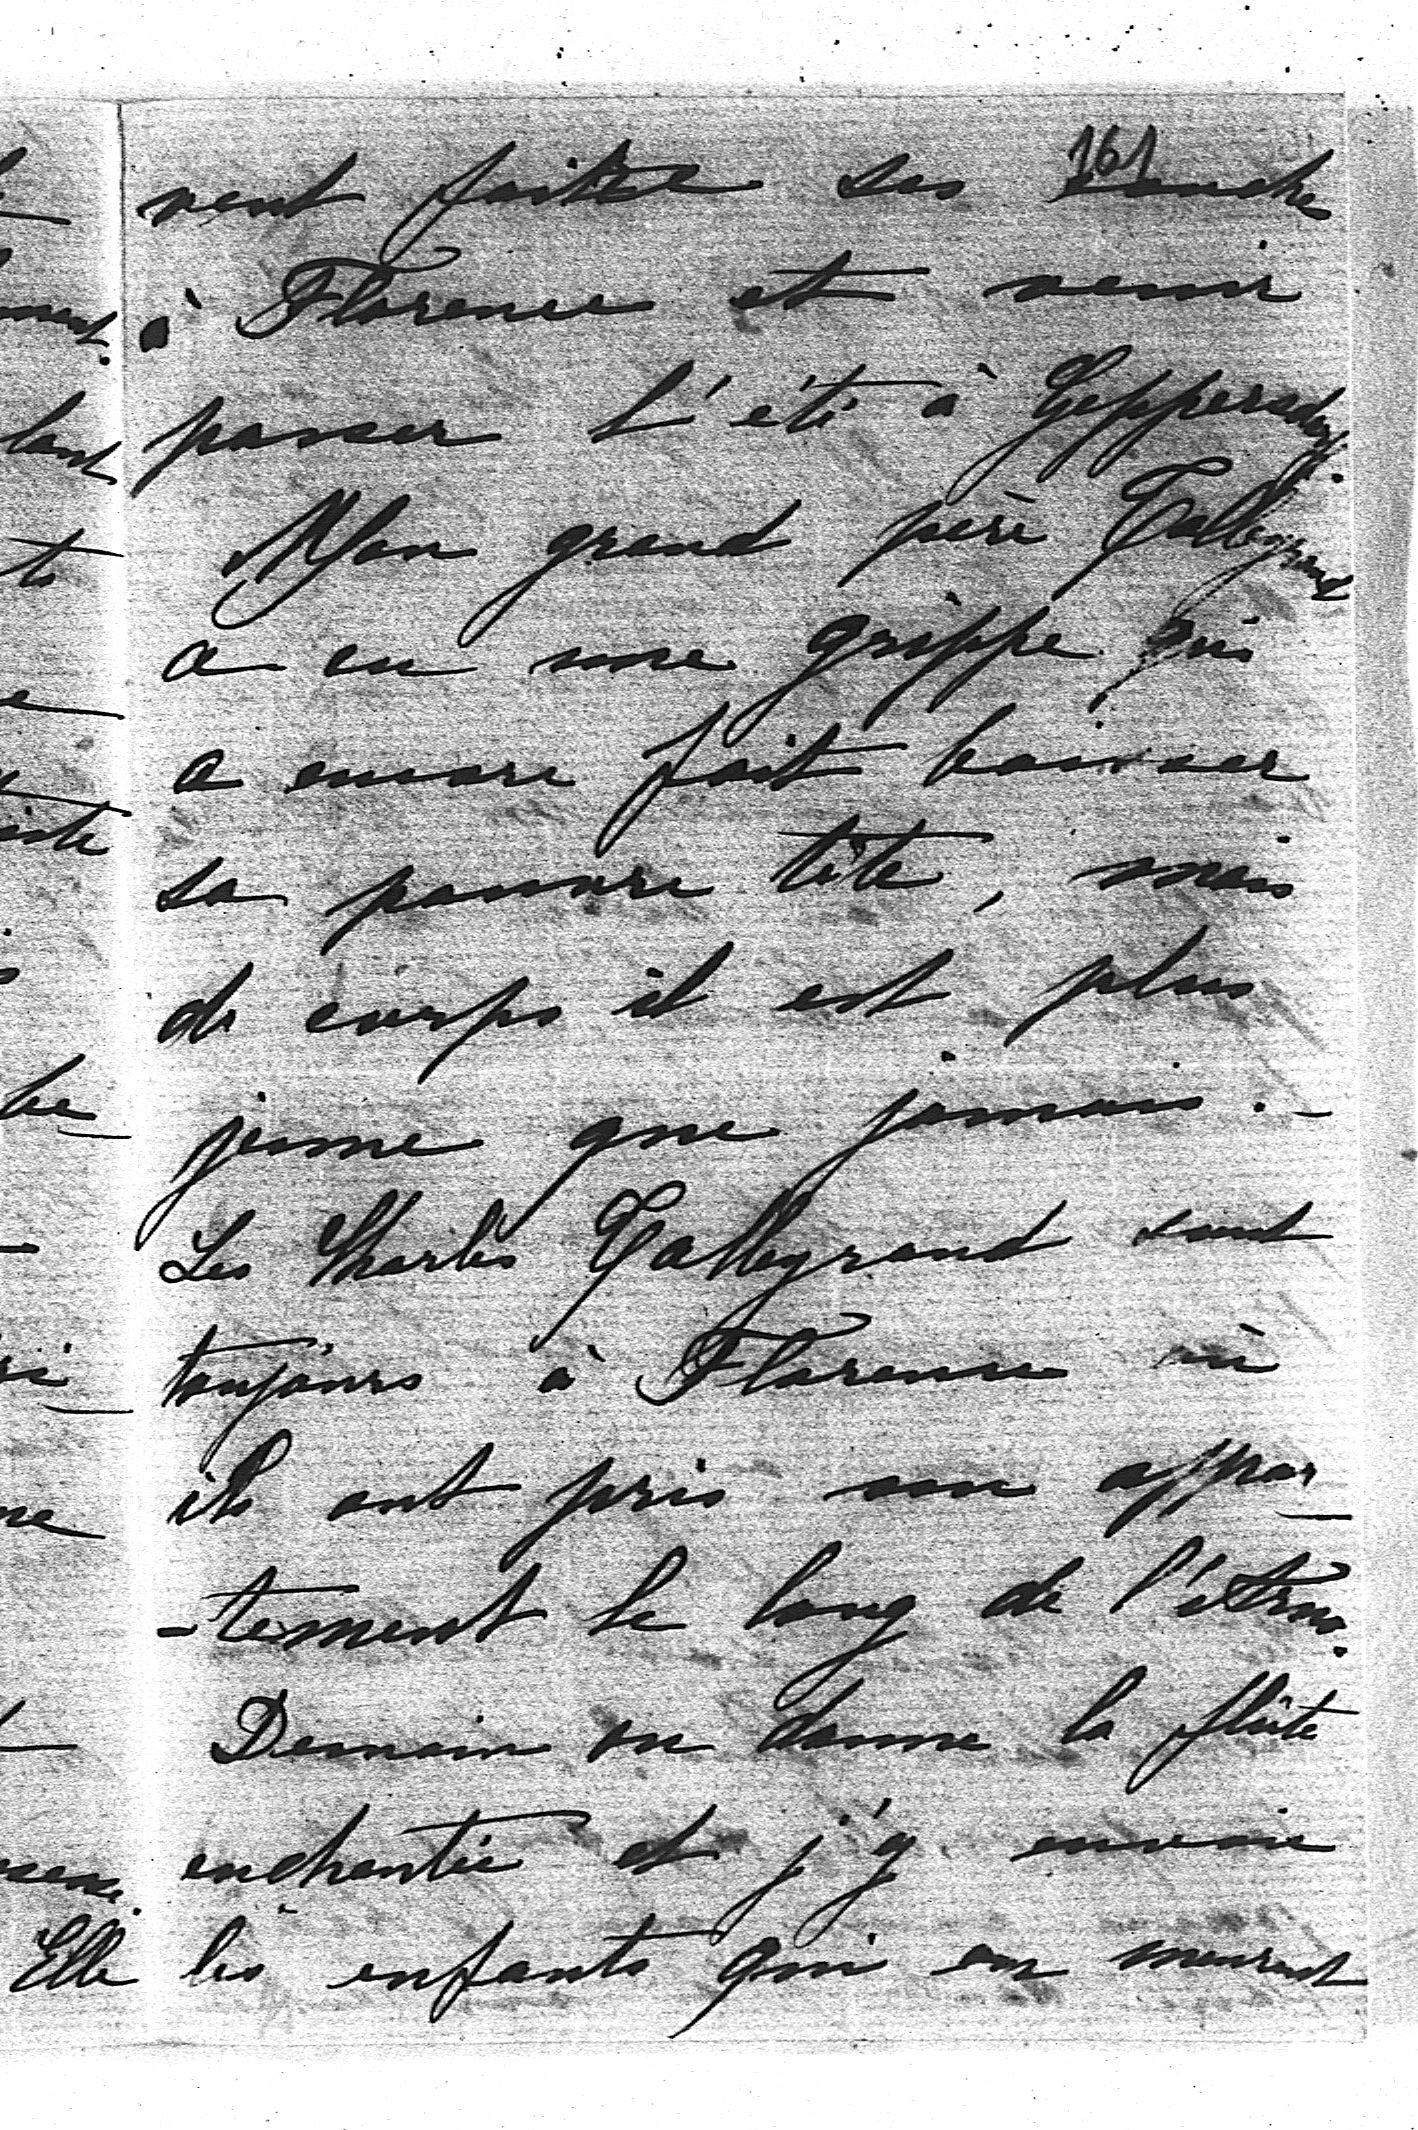 161
veut faire ses couches
à Florence et venir
passer l'été à Geppersdorf.
Mon grand père Talleyrand
a eu une grippe qui
a encore fait baisser
sa pauvre tête, mais
de corps il est plus
jeune que jamais. -
Les Charles Talleyrand sont
toujours à Florence où
ils ont pris un appar
-tement le long de l'Arno.
Demain on donne la flûte
enchantée et j'y envoie
Elle
les enfants qui en meurent